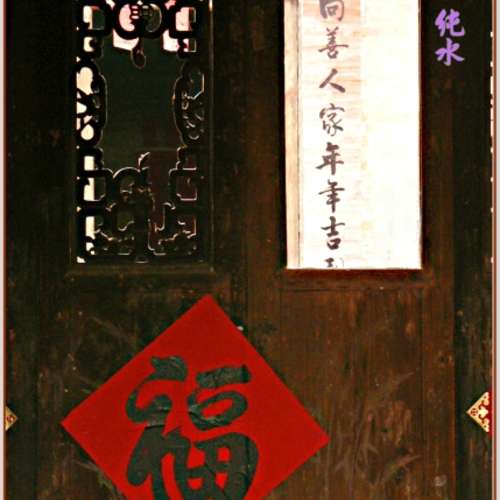 向善人家年年吉
纯水
福